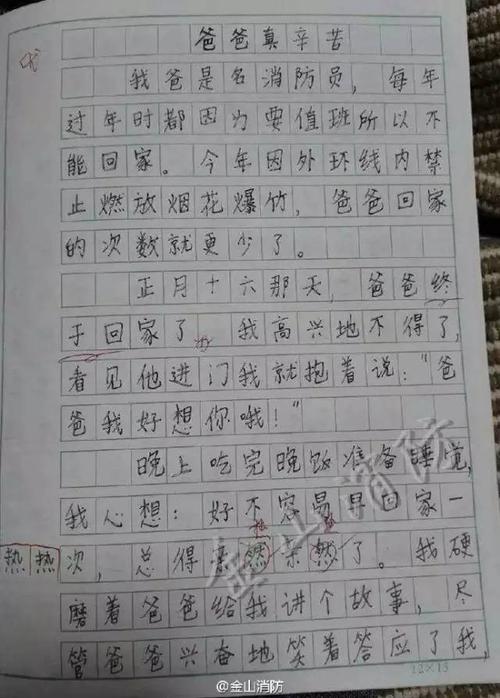 爸爸真辛苦
我爸是名消防员，每年
过年时都因为要值班所以不
能回家。今年因外环线内禁
止燃放烟花爆竹，爸爸回家
的次数就更少了。
正月十六那天，爸爸终
于回家了，我高兴地不得了，
看见他进门我就抱着说："爸
爸我好想你哦！"
晚上吃完晚饭准备睡觉，
我心想：好不容易早回家一
热热 次，总得亲然亲然了。我硬
磨着爸爸给我讲个故事，尽
管爸爸兴奋地笑着答应了我，
金山消防
12×13
@金山消防